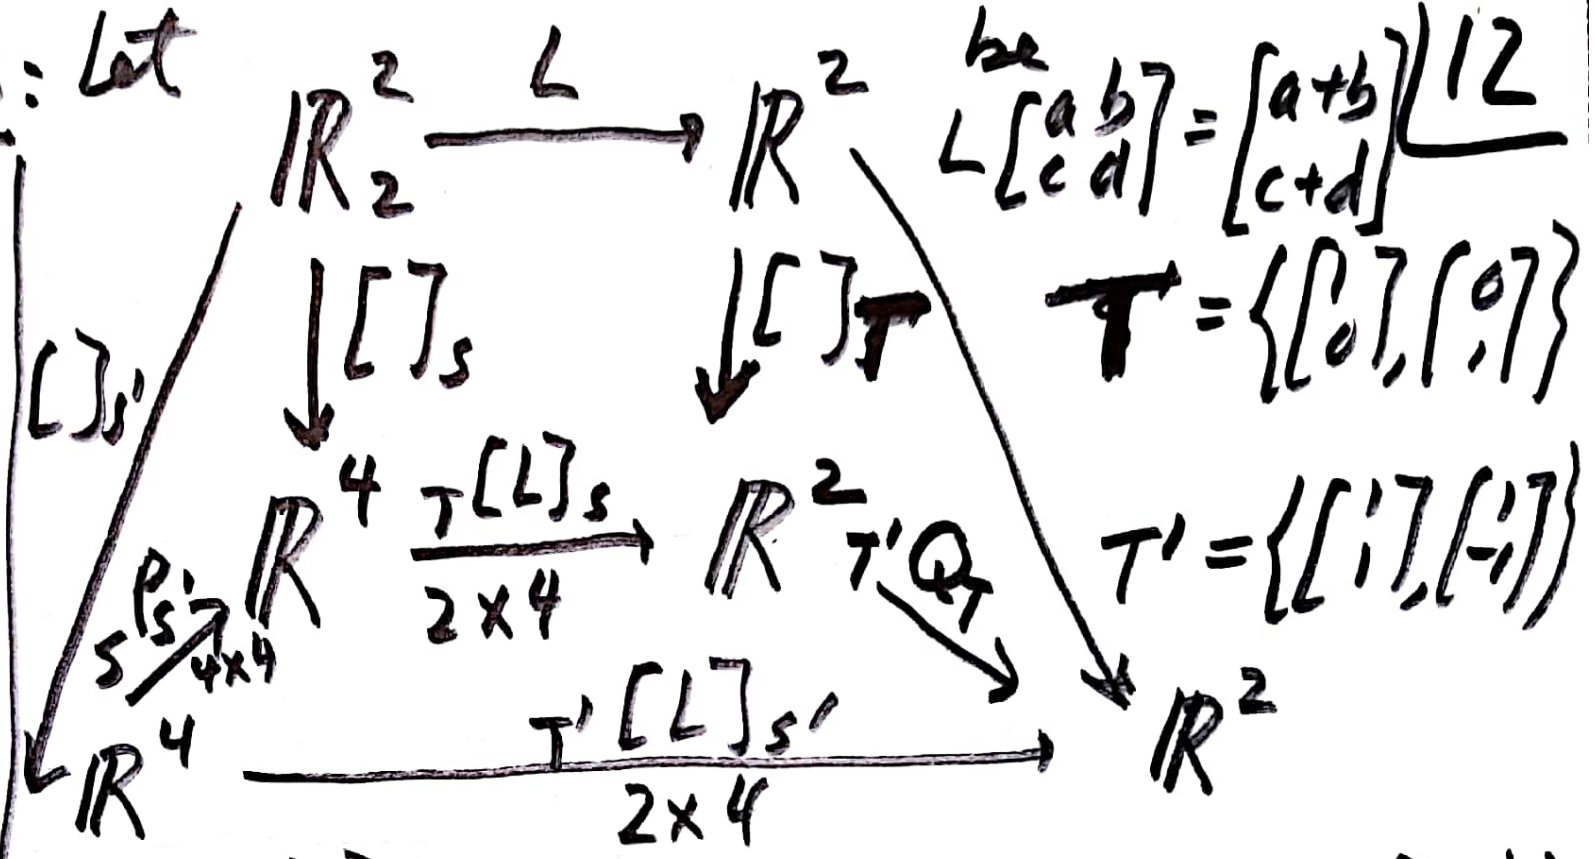 : Let ℝ²₂ —L→ ℝ² be L[a b; c d] = [a+b; c+d] 12
[ ]s' [ ]s [ ]T T = {[1; 0], [0; 1]}
ℝ⁴ T[L]s ℝ² T'QT T' = {[1; 1], [1; -1]}
2×4
sPs' 4×4
ℝ⁴ T'[L]s' ℝ²
2×4